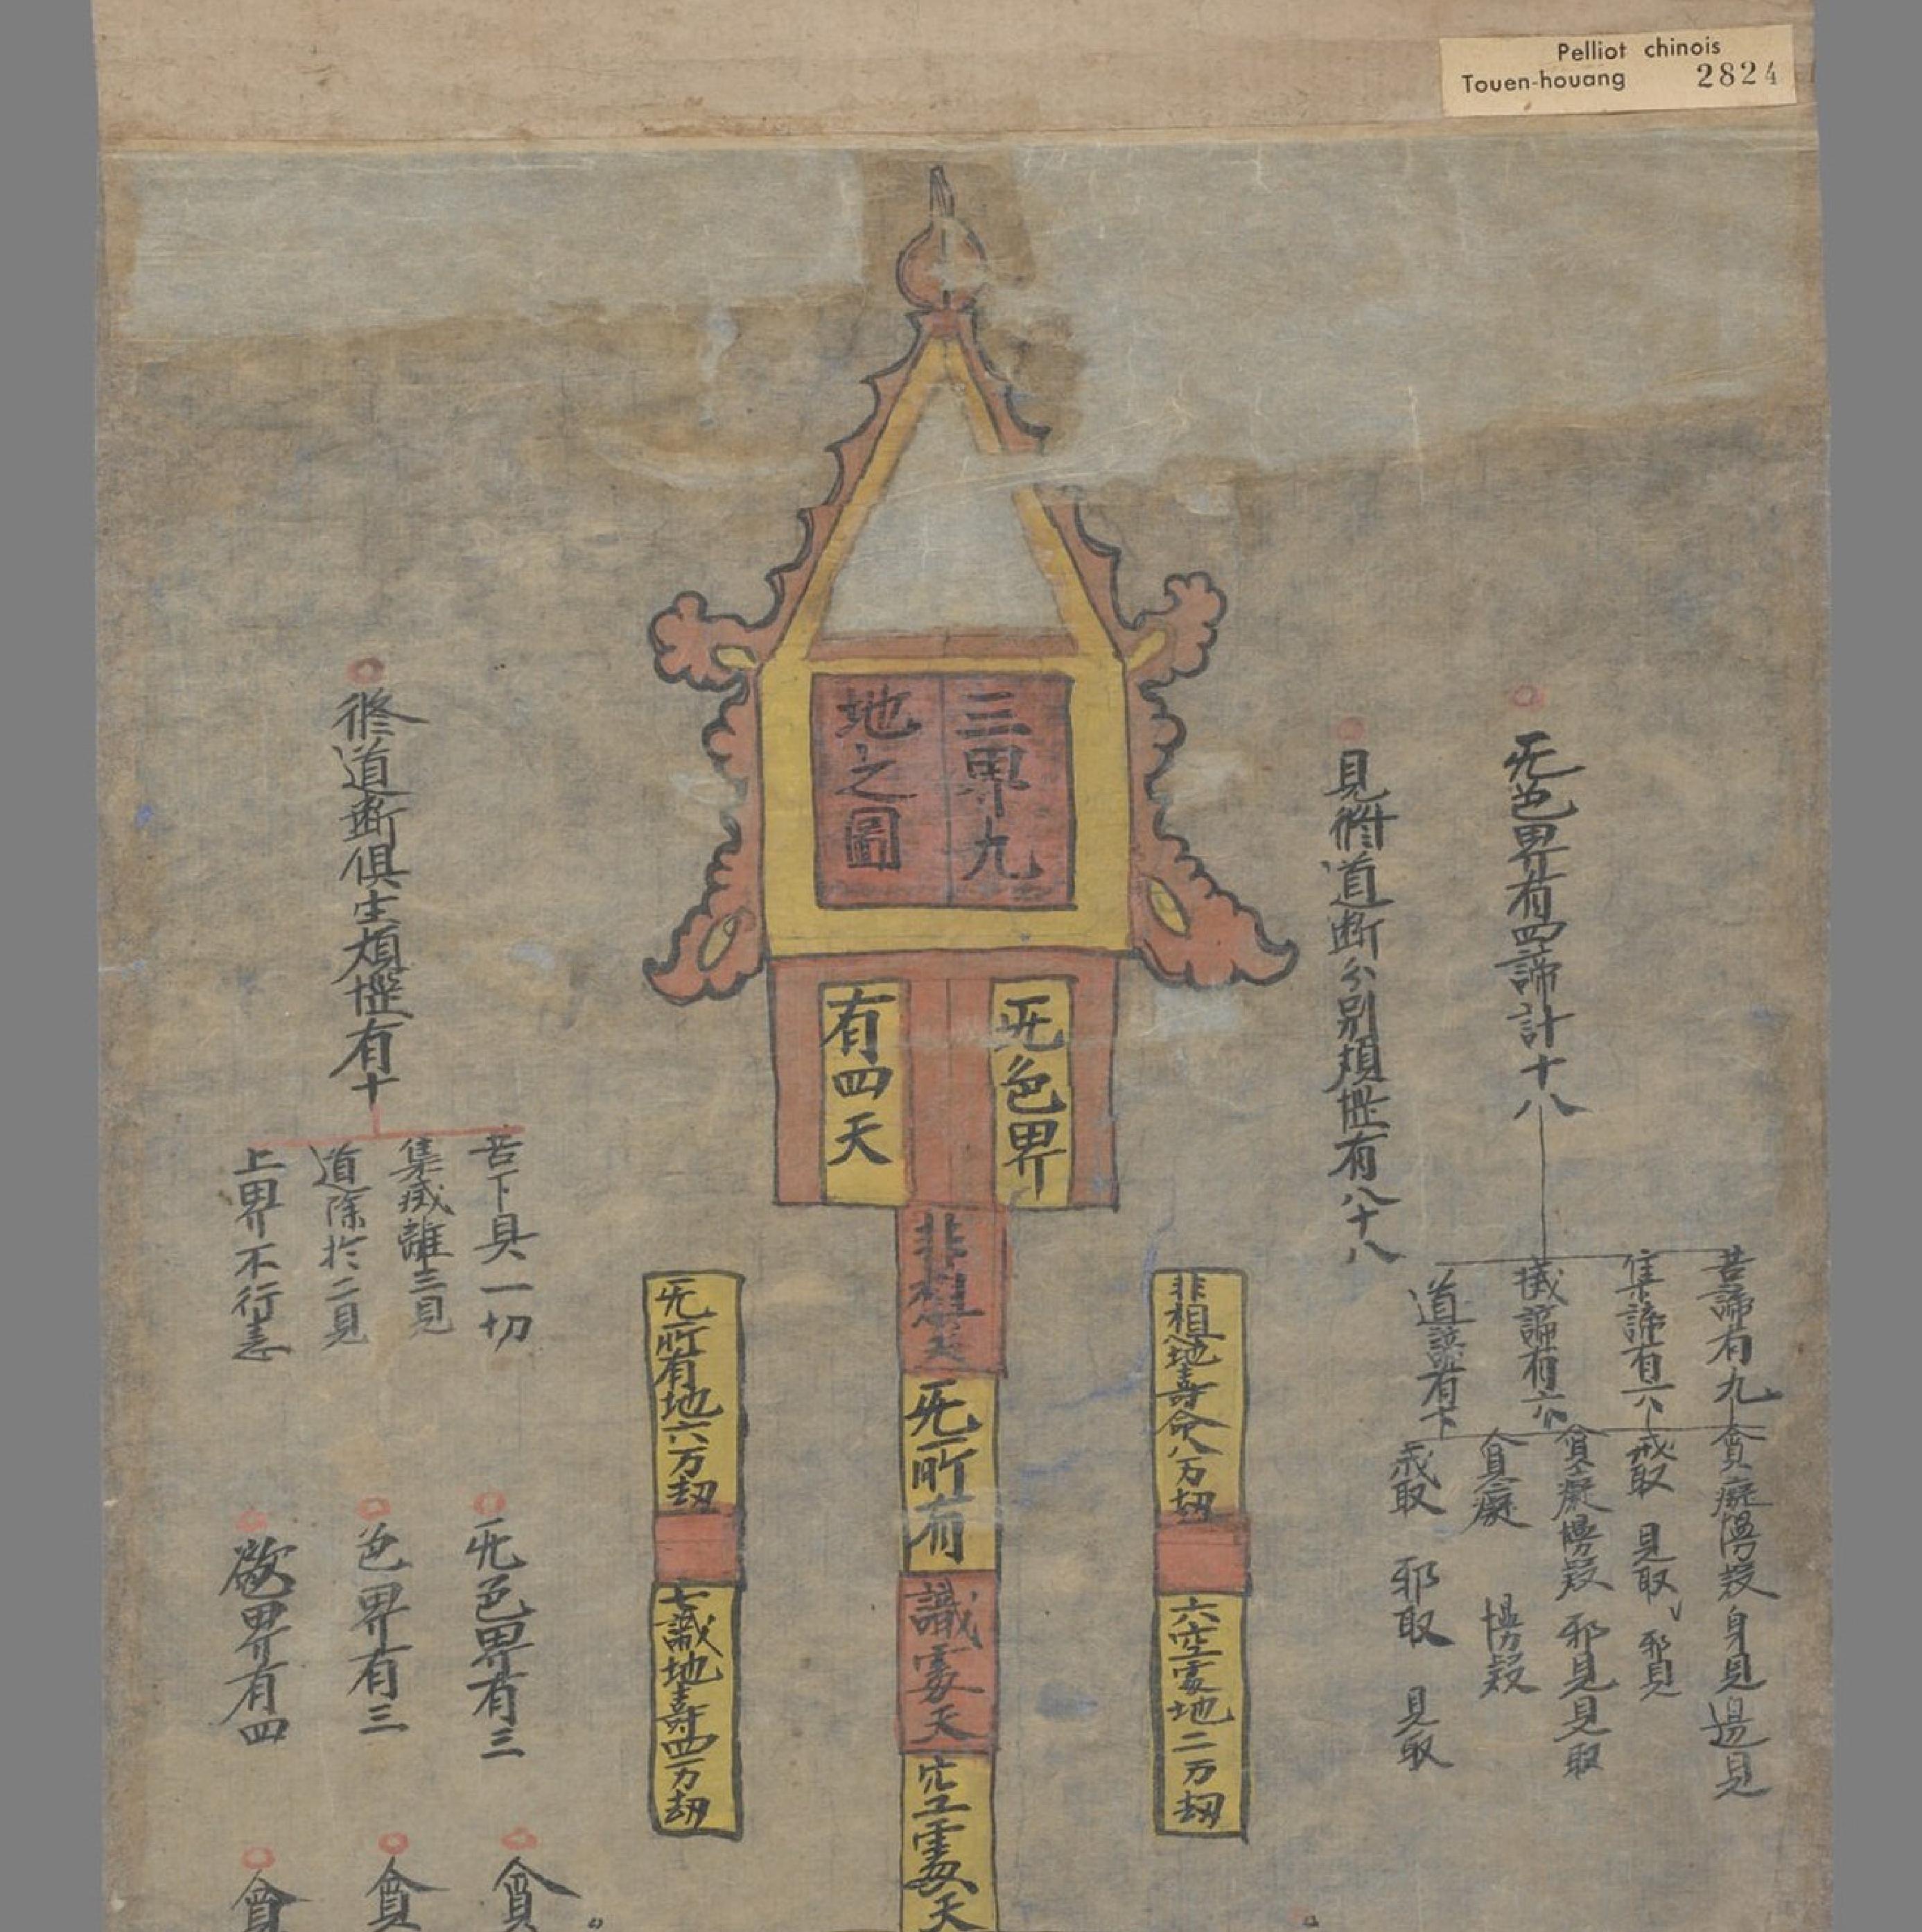 Pelliot chinois
Touen-houang 2824
三界九
地之圖
无色界
有四天
非想天
无所有
識處天
空處天
非想地壽命八万劫
六空處地二万劫
无所有地六万劫
七識地壽四万劫
无色界有四諦計十八
見修道断分別煩惱有八十八
苦諦有九
集諦有六
滅諦有六
道諦有
貪癡慢疑身見邊見
戒取 見取 邪見
貪癡慢疑邪見見取
貪癡 慢疑
戒取 邪取 見取
修道断俱生煩惱有十
苦下具一切
集滅離三見
道除於二見
上界不行恚
无色界有三
色界有三
欲界有四
貪
貪
貪